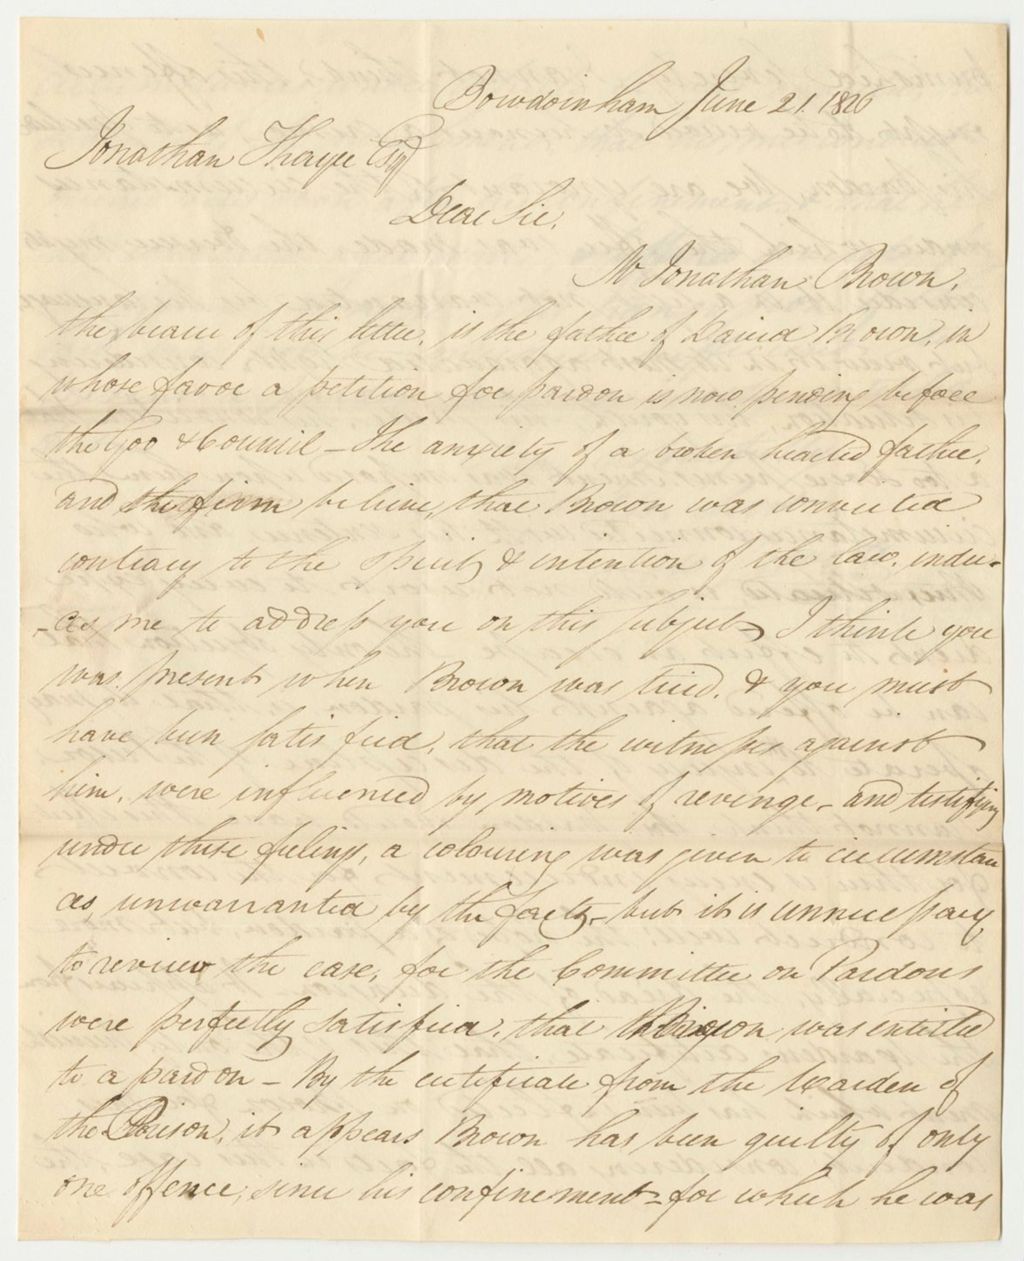 Bowdoinham June 21. 1826
Jonathan Thayer Esq
Dear Sir,
Mr Jonathan Brown,
the bearer of this letter, is the father of David Brown, in
whose favor a petition for pardon is now pending before
the Gov & Council – The anxiety of a broken hearted father,
and the firm believe, that Brown was convicted
contrary to the spirit & intention of the law, indu-
-ces me to address you on this subject – I think you
was present when Brown was tried, & you must
have been satisfied, that the witnesses against
him, were influenced by motives of revenge – and testifying
under these feelings, a colouring was given to circumstan
ces, unwarranted by the facts – but it is unnecessary
to review the case, for the Committee on Pardons
were perfectly satisfied, that Brown was entitled
to a pardon – By the certificate from the Warden of
the Prison, it appears Brown has been guilty of only
one offence, since his confinement – for which he was